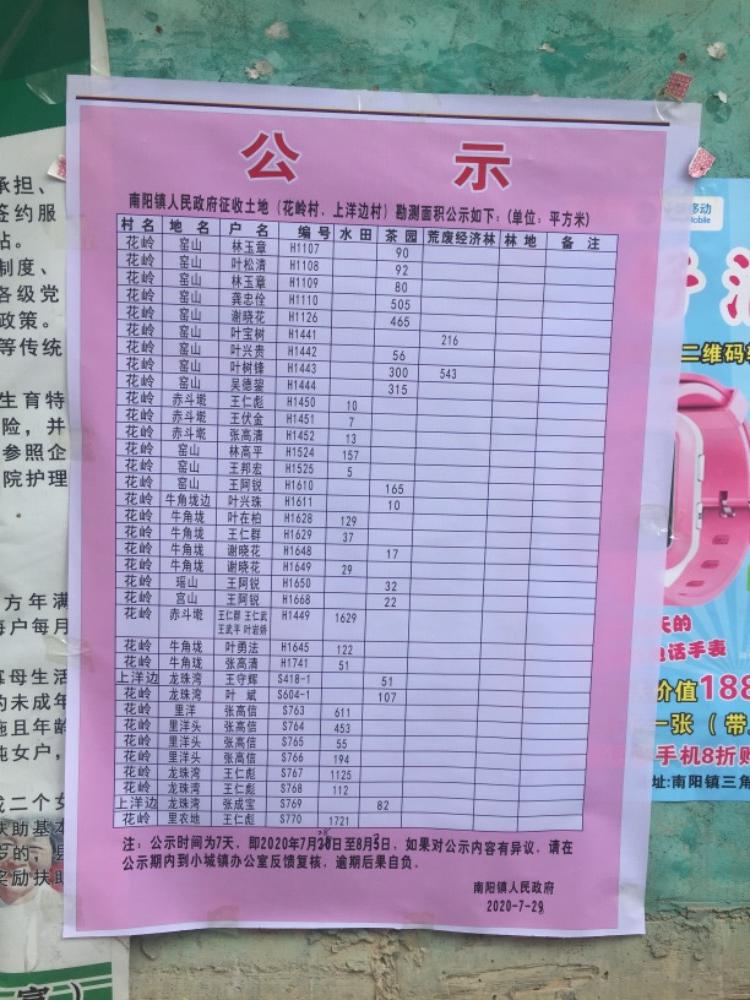 公 示
南阳镇人民政府征收土地（花岭村、上洋边村）勘测面积公示如下：(单位：平方米)
村名 地名 户名 编号 水田 茶园 荒废经济林 林地 备注
花岭 窑山 林玉章 H1107 90
花岭 窑山 叶松清 H1108 92
花岭 窑山 林玉章 H1109 80
花岭 窑山 龚忠佺 H1110 505
花岭 窑山 谢晓花 H1126 465
花岭 窑山 叶宝树 H1441 216
花岭 窑山 叶兴贵 H1442 56
花岭 窑山 叶树锋 H1443 300 543
花岭 窑山 吴德鋆 H1444 315
花岭 赤斗墘 王仁彪 H1450 10
花岭 赤斗墘 王伏金 H1451 7
花岭 赤斗墘 张高清 H1452 13
花岭 窑山 林高平 H1524 157
花岭 窑山 王邦宏 H1525 5
花岭 窑山 王阿锐 H1610 165
花岭 牛角垅边 叶兴珠 H1611 10
花岭 牛角垅 叶在柏 H1628 129
花岭 牛角垅 王仁群 H1629 37
花岭 牛角垅 谢晓花 H1648 17
花岭 牛角垅 谢晓花 H1649 29
花岭 瑶山 王阿锐 H1650 32
花岭 宫山 王阿锐 H1668 22
花岭 赤斗墘 王仁群 王仁武 H1449 1629
王武平 叶岩娇
花岭 牛角垅 叶勇法 H1645 122
花岭 牛角垅 张高清 H1741 51
上洋边 龙珠湾 王守辉 S418-1 51
花岭 龙珠湾 叶斌 S604-1 107
花岭 里洋 张高信 S763 611
花岭 里洋头 张高信 S764 453
花岭 里洋头 张高信 S765 55
花岭 里洋头 张高信 S766 194
花岭 龙珠湾 王仁彪 S767 1125
花岭 龙珠湾 王仁彪 S768 112
上洋边 龙珠湾 张成宝 S769 82
花岭 里农地 王仁彪 S770 1721
注：公示时间为7天，即2020年7月28日至8月5日，如果对公示内容有异议，请在
公示期内到小城镇办公室反馈复核，逾期后果自负。
南阳镇人民政府
2020-7-29
承担、
签约服
站。
制度、
各级党
政策。
等传统
生育特
险，并
参照企
院护理
方年满
每户每月
母生活
的未成年
施且年龄
纯女户，
二个女
扶助基本
奖励扶助
移动
Mobile
二维码
天的
电话手表
价值188
一张（带
手机8折购
址:南阳镇三角